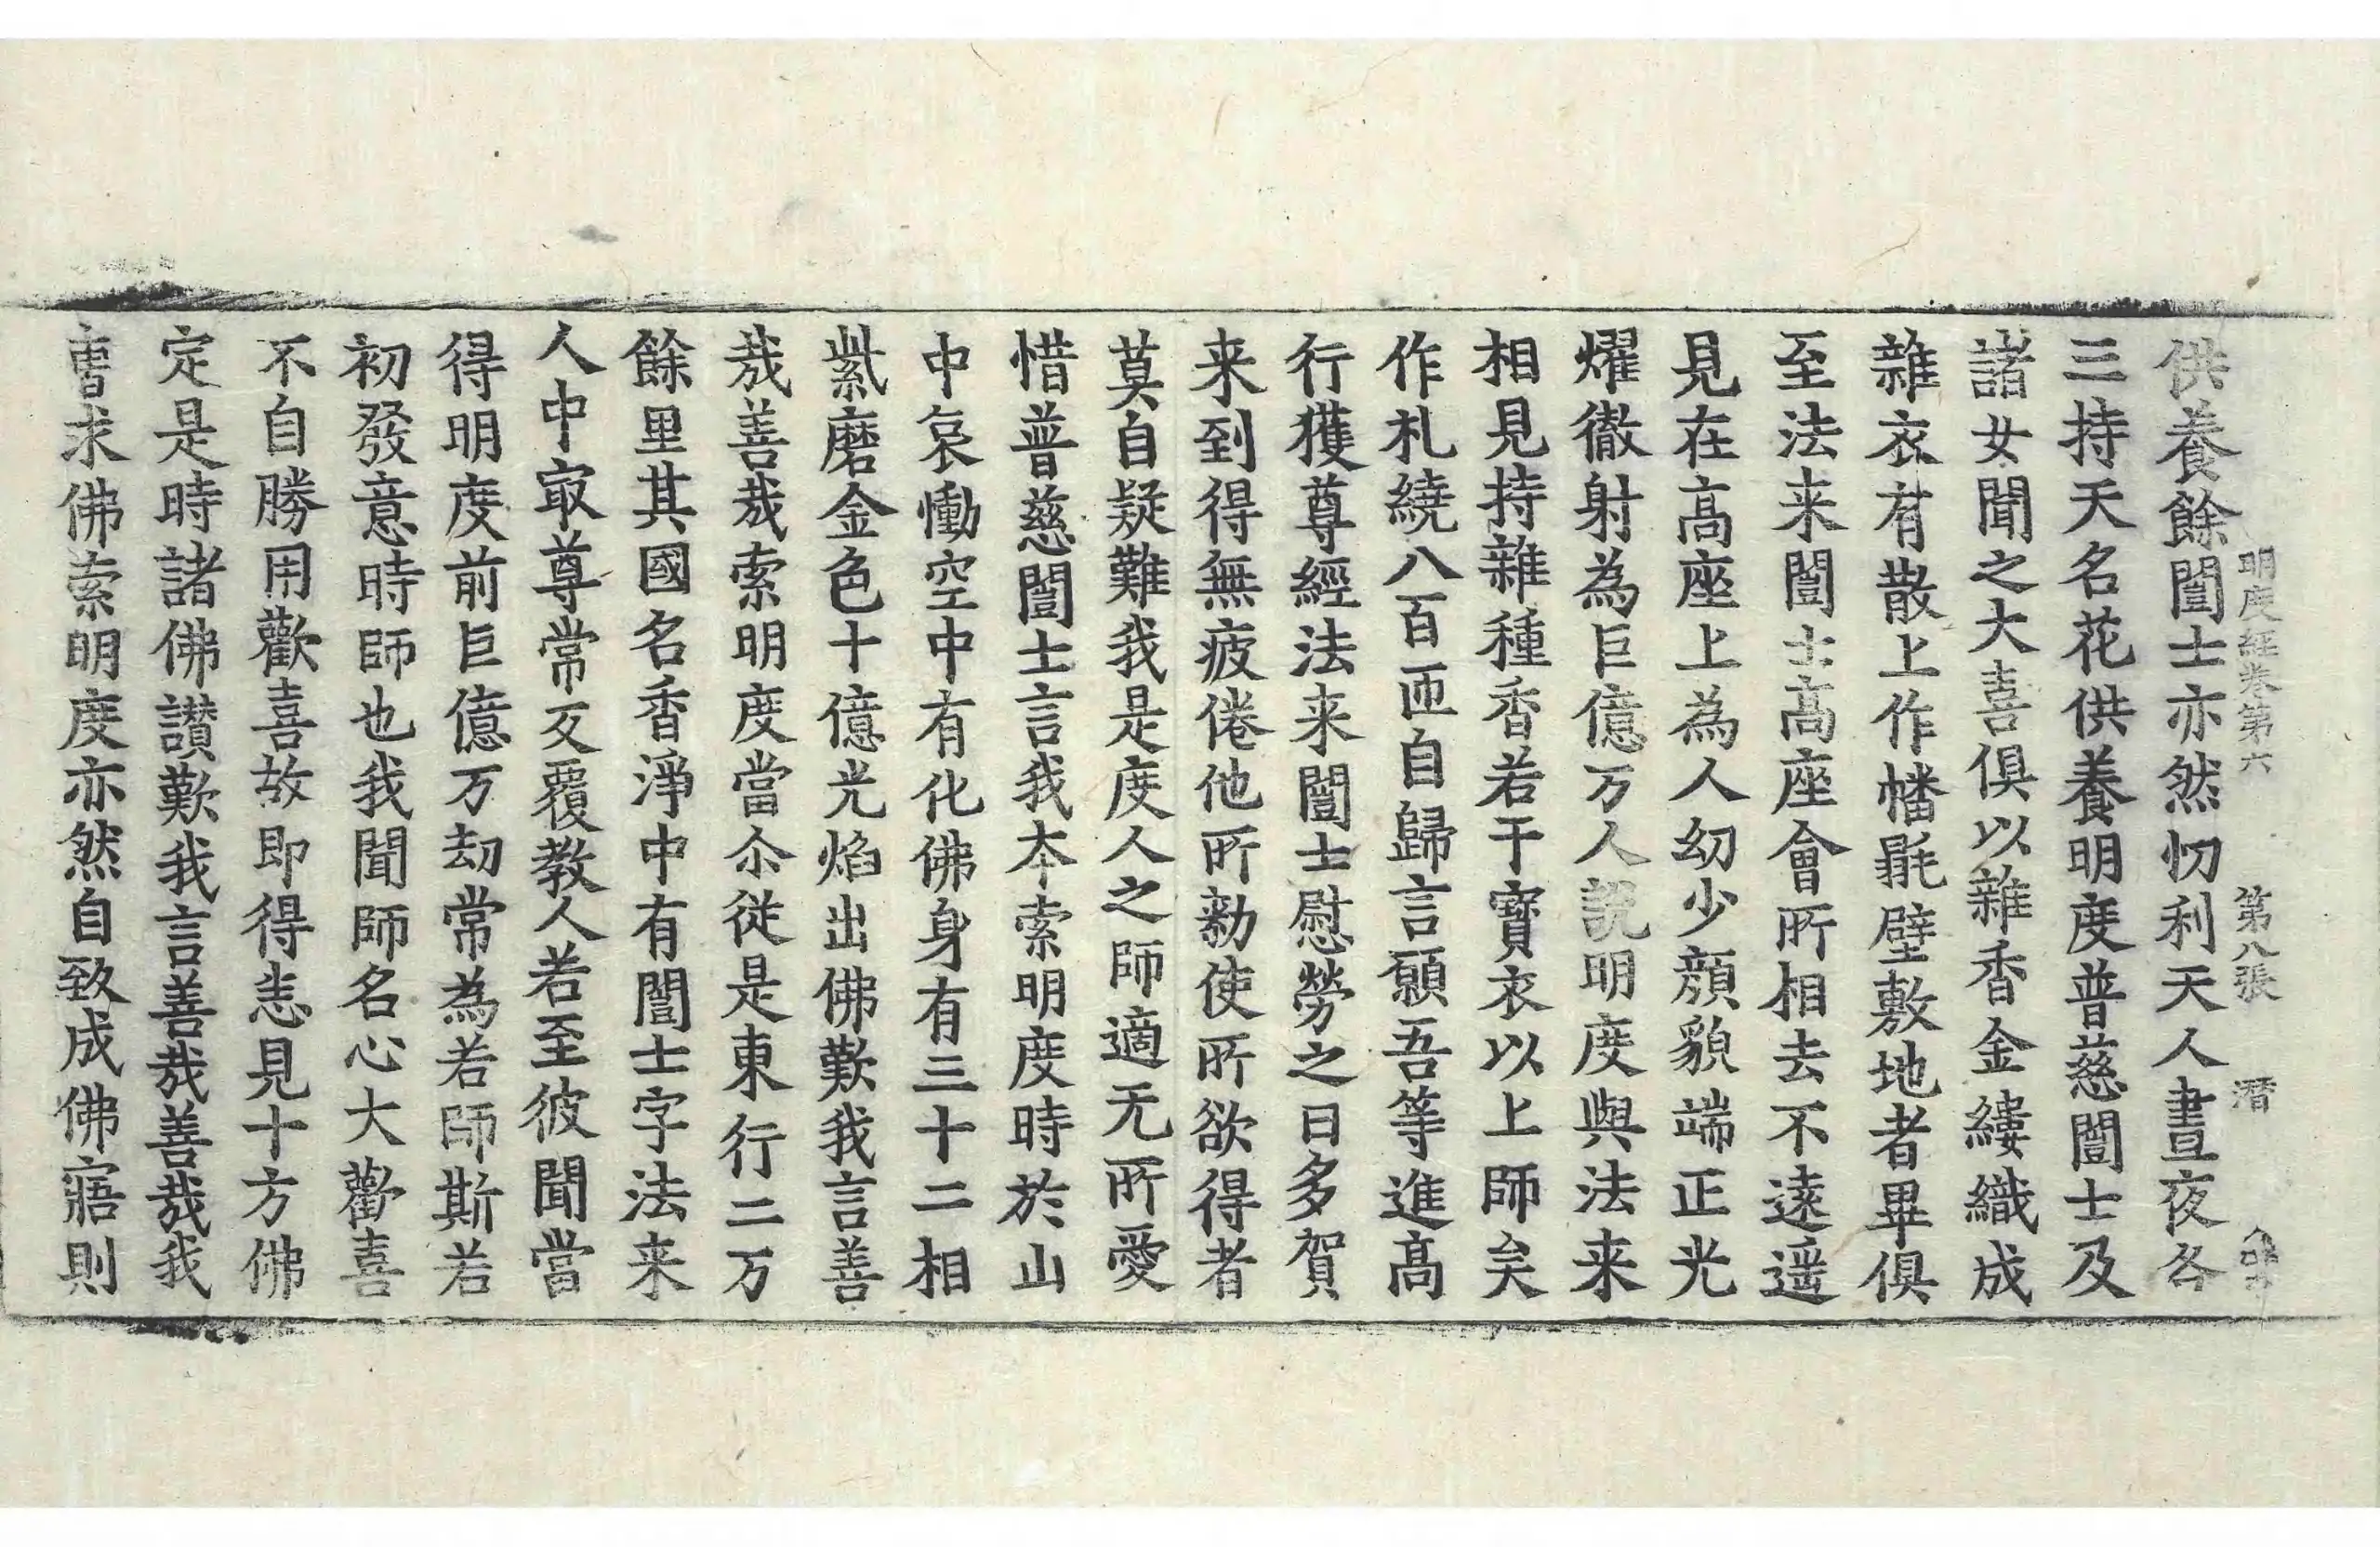 明度經卷第六 第八張 潛
供養餘闓士亦然忉利天人晝夜各
三持天名花供養明度普慈闓士及
諸女聞之大喜俱以雜香金縷織成
雜衣有散上作幡毾壁敷地者畢俱
至法来闓士高座會所相去不遠遥
見在高座上為人幼少顔貌端正光
燿徹射為巨億万人說明度與法来
相見持雜種香若干寶衣以上師矣
作札繞八百匝自歸言願吾等進高
行獲尊經法来闓士慰勞之曰多賀
来到得無疲倦他所勑使所欲得者
莫自疑難我是度人之師適无所愛
惜普慈闓士言我本索明度時於山
中哀慟空中有化佛身有三十二相
紫磨金色十億光焰出佛歎我言善
哉善哉索明度當尒從是東行二万
餘里其國名香淨中有闓士字法来
人中㝡尊常反覆教人若至彼聞當
得明度前巨億万劫常為若師斯若
初發意時師也我聞師名心大歡喜
不自勝用歡喜故即得恚見十方佛
定是時諸佛讃歎我言善哉善哉我
曺求佛索明度亦然自致成佛寤則